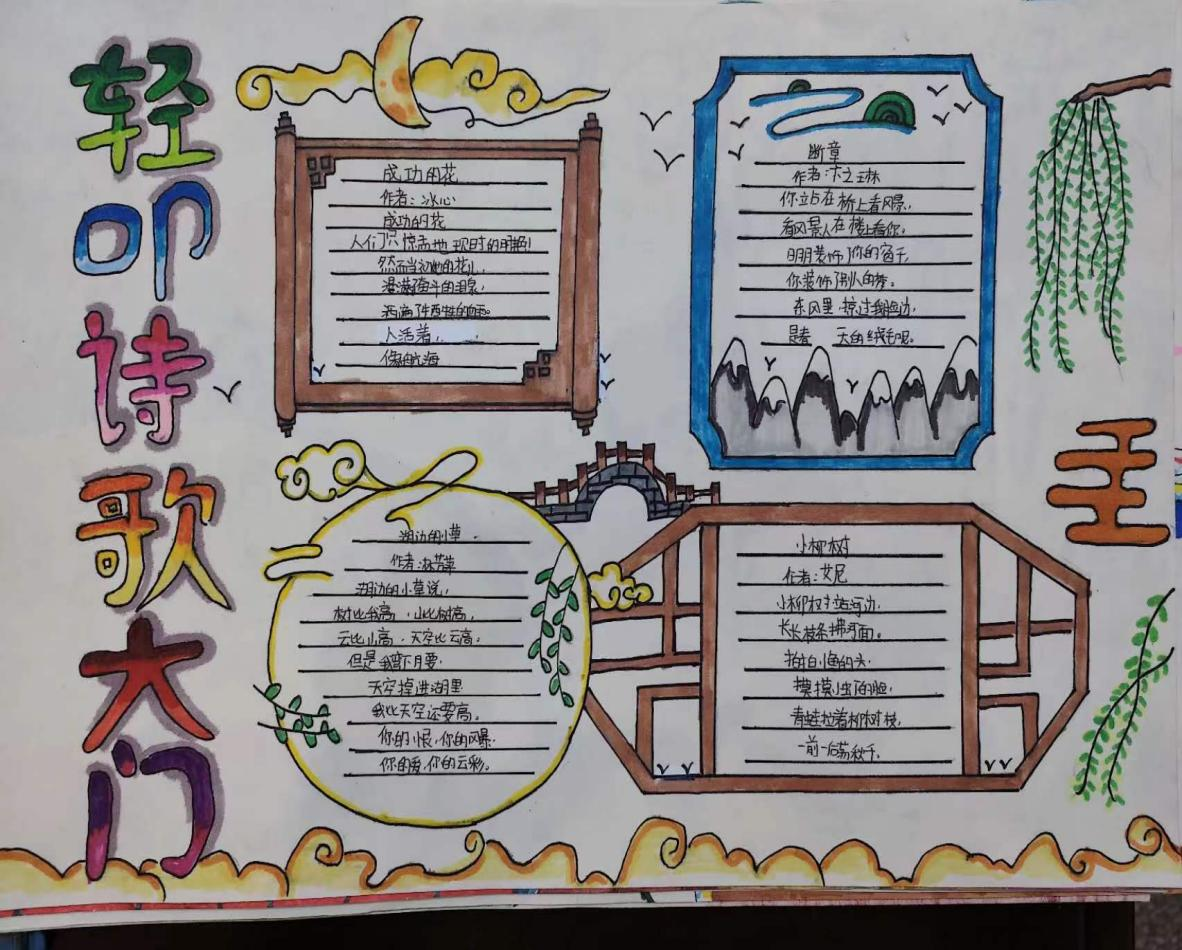 轻叩诗歌大门
成功的花
作者:冰心
成功的花
人们只惊羡地现时的明艳!
然而当初她的芽儿,
浸满了奋斗的泪泉,
洒满了牺牲的血雨。
人活着,
像航海
断章
作者:卞之琳
你立占在桥上看风景,
看风景人在楼上看你。
明月装饰了你的窗子,
你装饰了别人的梦。
东风里,掠过我脸边,
是春 天的绒毛呢。
湖边的小草
作者:林芳萍
湖边的小草说,
树比我高,山比树高,
云比山高,天空比云高。
但是我蹲下月要,
天空掉进湖里
我比天空还要高。
你的恨,你的风景
你的爱,你的云彩。
小柳树
作者:艾尼
小柳树站河边,
长长枝条拂河面。
拍拍小鱼的头
摸摸小虫的脸,
青蛙拉着柳树枝,
一前一后荡秋千。
主